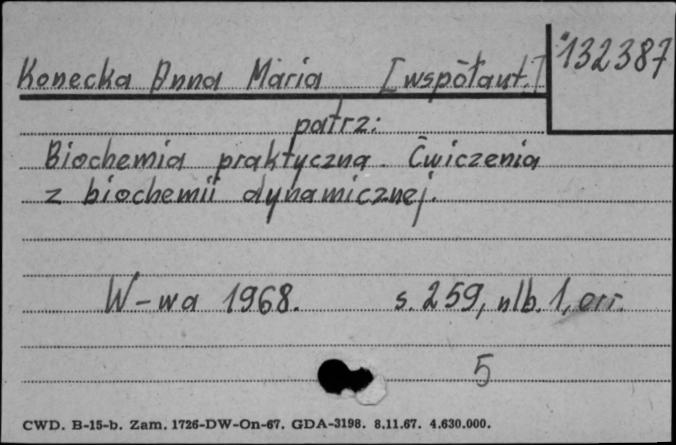 132387
Konecka Anna Maria [współaut.]
patrz:
Biochemia praktyczna. Ćwiczenia
z biochemii dynamicznej.
W-wa 1968. s. 259, nlb. 1, err.
5
CWD. B-15-b. Zam. 1726-DW-On-67. GDA-3198. 8.11.67. 4.630.000.